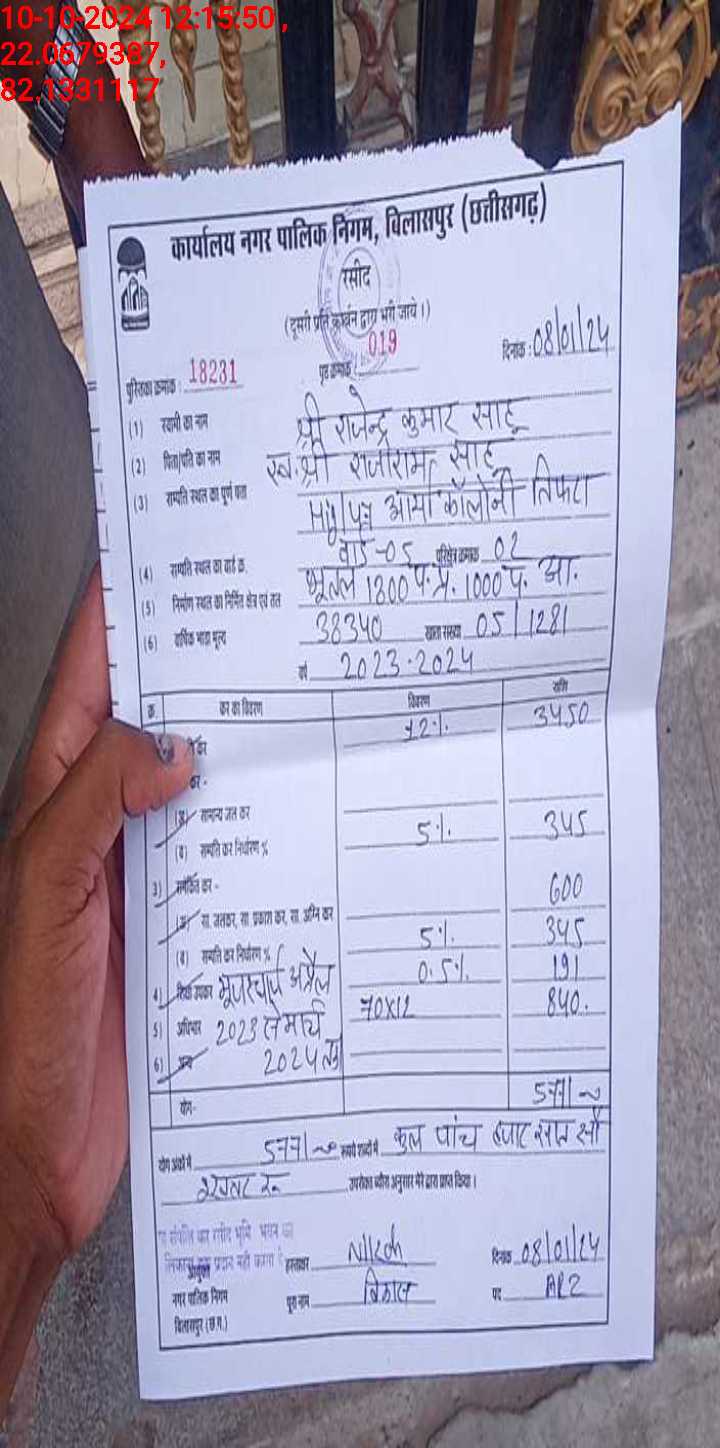 10-10-2024 12:15:50 ,
22.0679387,
82.1331117
कार्यालय नगर पालिक निगम, बिलासपुर (छत्तीसगढ़)
रसीद
(दूसरी प्रति कृषकन द्वारा भरी जाये।)
पुस्तिका क्रमांक : 18231 पृष्ठ क्रमांक 019 दिनांक : 08/01/24
(1) स्वामी का नाम श्री राजेन्द्र कुमार साहू
(2) पिता/पति का नाम स्व. श्री राजाराम साहू
(3) सम्पत्ति स्थल का पूर्ण पता आर्या कॉलोनी तिफरा
(4) सम्पत्ति स्थल का वार्ड क्र. वार्ड-05 परिक्षेत्र क्रमांक 02
(5) निर्माण स्थल का निर्मित क्षेत्र एवं तल भूतल 1200 प. प्र. 1000 प. आ.
(6) वार्षिक भाड़ा मूल्य 38340 खाता संख्या 05/1281
वर्ष 2023-2024
क्र. कर का विवरण विवरण राशि
कर 12% 3450
कर -
(अ) सामान्य जल कर
(ब) सम्पत्ति कर निर्धारण % 5% 345
3) समेकित कर - 600
(अ) सा. जलकर, सा. प्रकाश कर, सा. अग्नि कर
(ब) सम्पत्ति कर निर्धारण % 5% 345
4) शिक्षा उपकर यूजरचार्ज अप्रैल 0.5% 191
5) अधिभार 2023 से मार्च 70X12 840.
6) अन्य 2024 तक
योग- 5771
योग अंकों में 5771 रूपये शब्दों में कुल पांच हजार सात सौ
इकहत्तर रू. उपरोक्त ब्यौरा अनुसार मेरे द्वारा प्राप्त किया।
संपत्ति कर रसीद भूमि भवन का
प्रदान नही करता है
आयुक्त हस्ताक्षर दिनांक 08/01/24
नगर पालिक निगम पूरा नाम पद
बिलासपुर (छ.ग.)